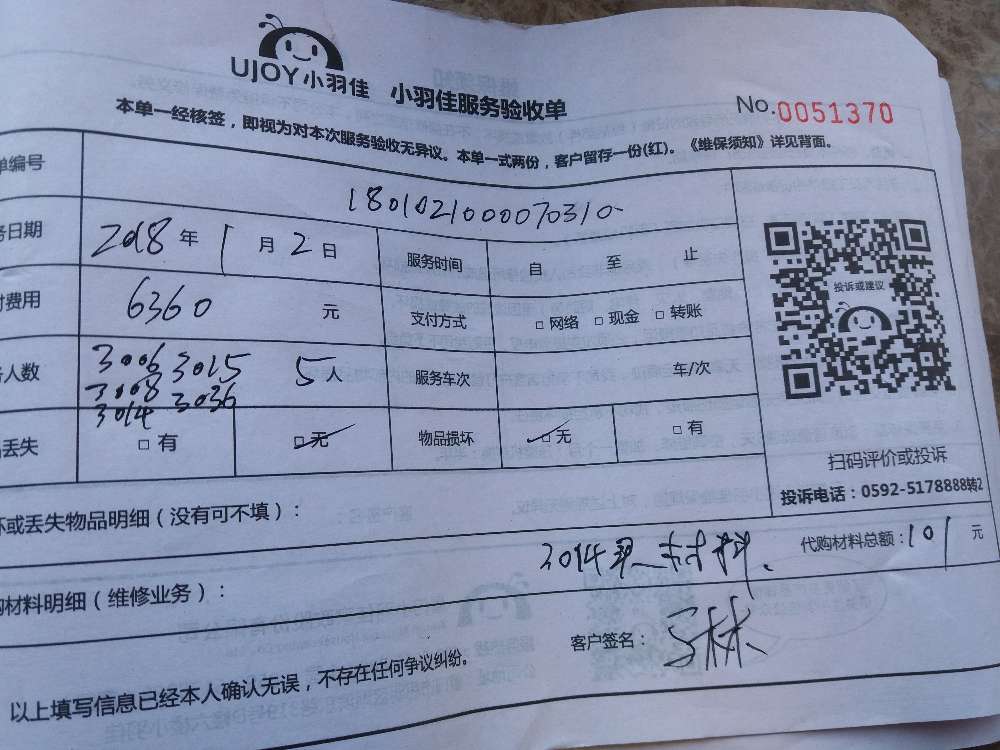 UJOY小羽佳 小羽佳服务验收单
No.0051370
本单一经核签，即视为对本次服务验收无异议。本单一式两份，客户留存一份(红)。《维保须知》详见背面。
单编号 1801021000070310
务日期 2018 年 1 月 2 日 服务时间 自 至 止
付费用 6360 元 支付方式 □ 网络 □ 现金 □ 转账
人数 3006 3015 5 人 服务车次 车/次
3008 3036
3014
丢失 □ 有 □ 无 物品损坏 □ 无 □ 有
投诉或建议
扫码评价或投诉
投诉电话：0592-5178888转2
坏或丢失物品明细（没有可不填）：
购材料明细（维修业务）： 3014 材料. 代购材料总额：101 元
以上填写信息已经本人确认无误，不存在任何争议纠纷。 客户签名：